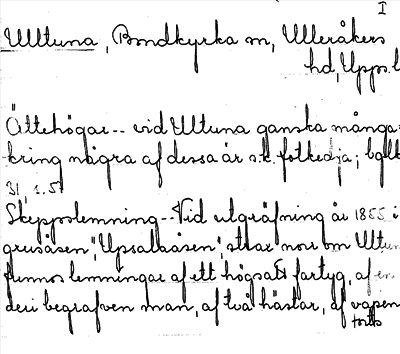 I
Ulltuna, Bondkyrka sn, Ulleråkers
hd, Uppsl
Ättehögar -- vid Ultuna ganska många
kring några af dessa är s.k. fotkedja; bglk
31, 1.5
Skeppslemning -- Vid utgräfning år 1855 i
grusåsen, "Upsalaåsen", strax norr om Ultun
funnos lemningar af ett högsatt fartyg, af en
deri begrafven man, af två hästar, af vapen
forts